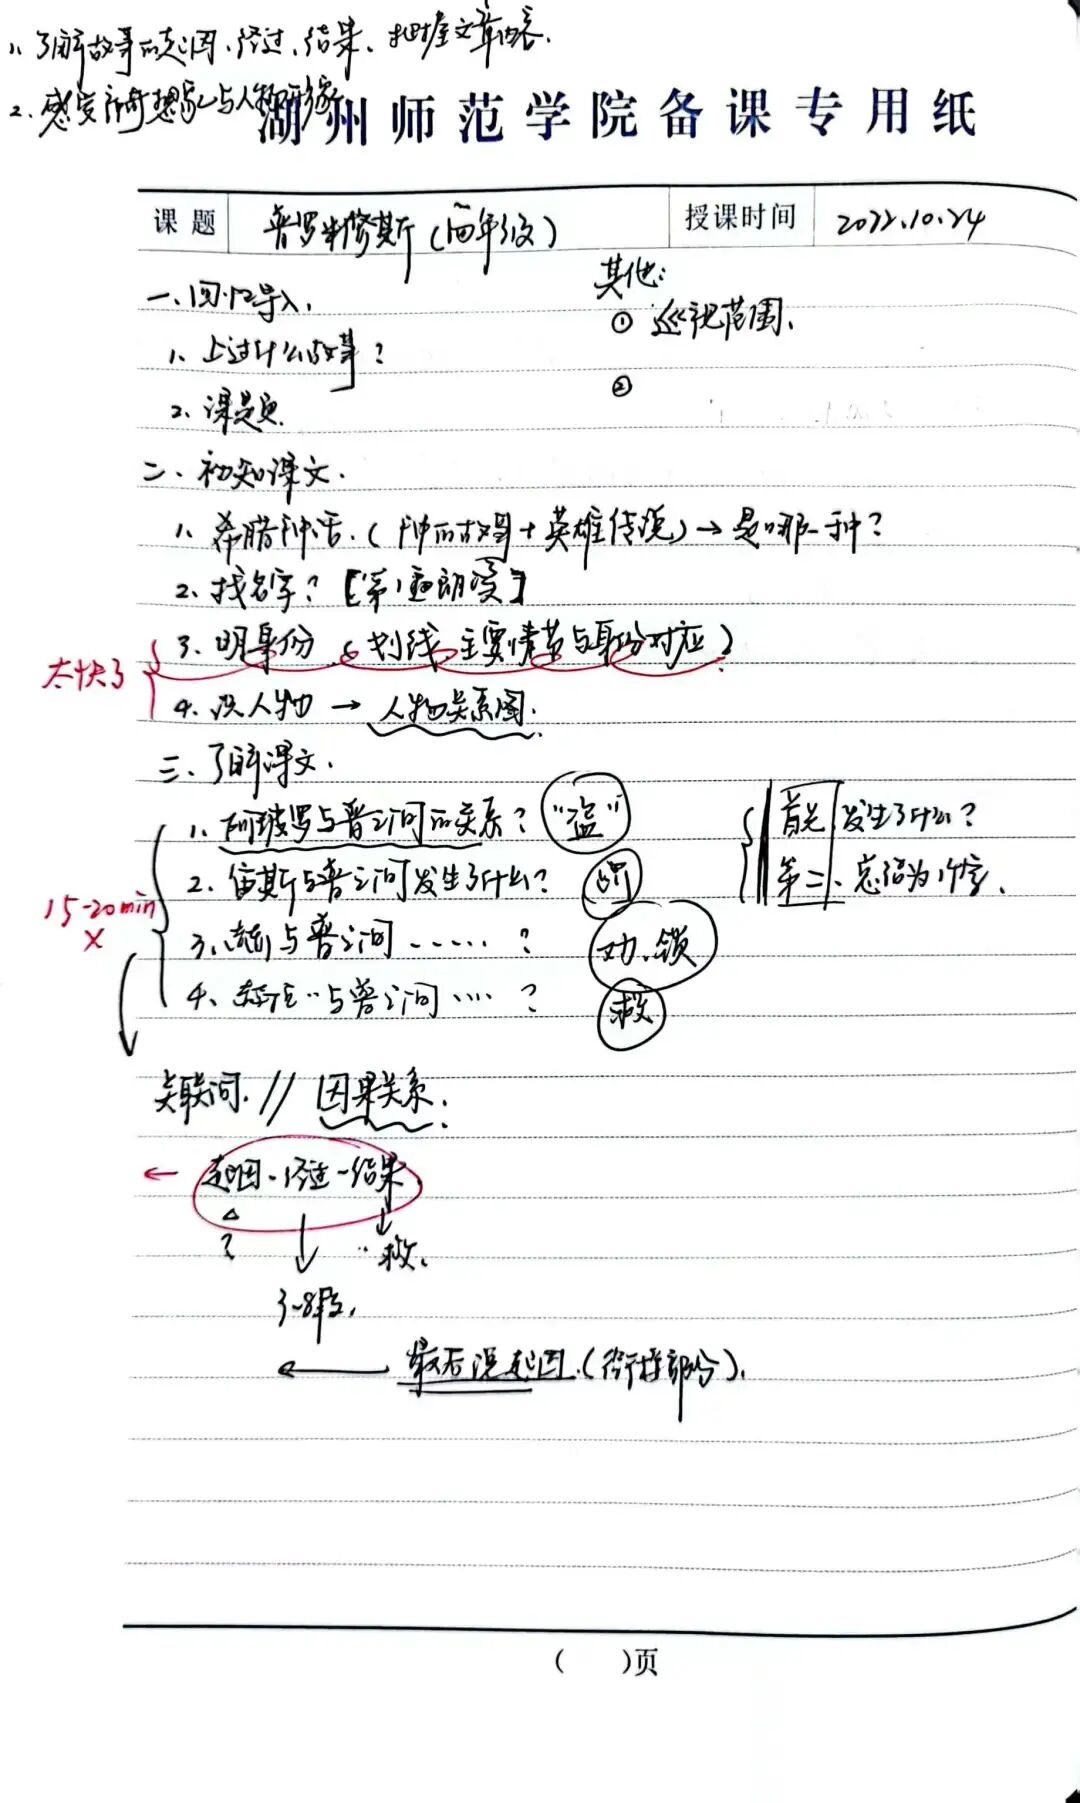 1、了解故事的起因、经过、结果、把握文章内容.
2、感受神奇想象与人物形象
湖州师范学院备课专用纸
课题 普罗米修斯(四年级) 授课时间 2022.10.24
一、回忆导入.
其他:
① 巡视范围、
1、上过什么故事?
②
2、课题
二、初知课文.
1、希腊神话.(神的故事+英雄传说)→是哪一种?
2、找名字?【第1遍朗读】
3、明身份(划线 主要情节与身份对应)
太快了
4、人物→人物关系图.
三、了解课文.
1、阿波罗与普之间的关系? "盗"
首先 发生了什么?
2、宙斯与普之间发生了什么? 罚
第二、总结为1个字、
15-20min
×
3、与普之间……? 劝、锁
4、赫拉…与普之间…? 救
关联词.// 因果关系.
← 起因-经过-结果
? 救.
3~8段.
← 最后说起因.(衔接部分).
( )页